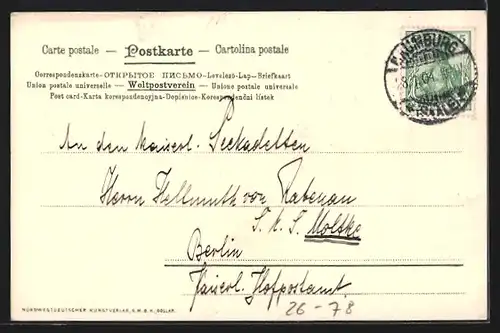 Carte postale — Postkarte — Cartolina postale
Correspondenzkarte - ОТКРЫТОЕ ПИСЬМО - Levelező-Lap - Briefkaart
Union postale universelle — Weltpostverein — Unione postale universale
Post card - Karta korespondencyjna - Dopisnice - Korespondenční lístek
NAUMBURG
(SAALE)
An den Kaiserl. Seekadetten
Herrn Hellmuth von Rabenau
S. M. S. Moltke
Berlin
Kaiserl. Hofpostamt
26-78
NORDWESTDEUTSCHER KUNSTVERLAG, G.M.B.H. GOSLAR.